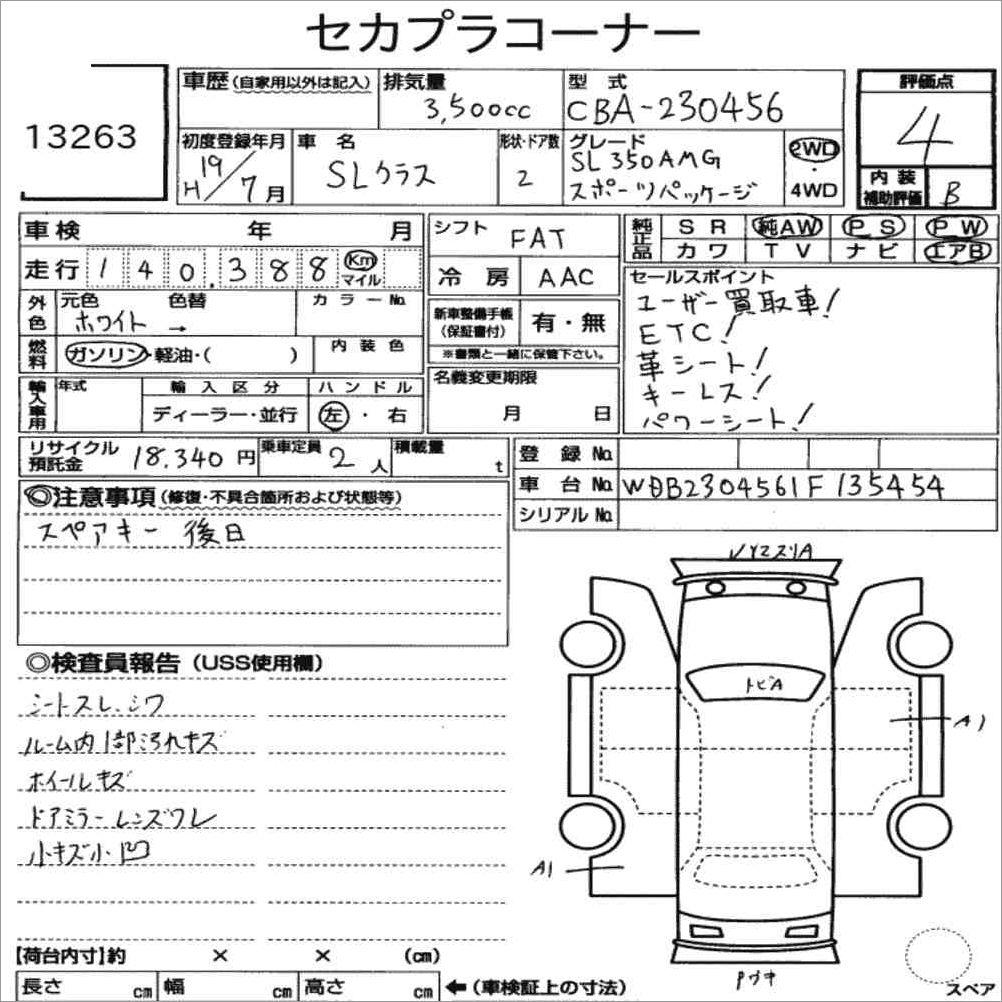 セカプラコーナー
13263
車歴(自家用以外は記入)
排気量
3,500cc
型 式
CBA-230456
評価点
4
内装
補助評価
B
初度登録年月
H19/7月
車 名
SLクラス
形状・ドア数
2
グレード
SL350AMG
スポーツパッケージ
2WD
・
4WD
車検 年 月
走行 1 4 0,3 8 8 Km マイル
外色
元色
ホワイト →
色替
カラーNo.
燃料
ガソリン・軽油・( )
内装色
輸入車用
年式
輸入区分
ディーラー・並行
ハンドル
左・右
シフト
FAT
冷房
AAC
新車整備手帳
(保証書付)
有・無
※書類と一緒に保管下さい。
名義変更期限
月 日
純正品
SR 純AW PS PW
カワ TV ナビ エアB
セールスポイント
ユーザー買取車!
ETC!
革シート!
キーレス!
パワーシート!
リサイクル
預託金
18,340円
乗車定員
2人
積載量
t
登録No.
車台No. WDB2304561F135454
シリアルNo.
◎注意事項(修復・不具合箇所および状態等)
スペアキー 後日
◎検査員報告(USS使用欄)
シートスレ、シワ
ルーム内1部汚れキズ
ホイールキズ
ドアミラーレンズワレ
小キズ小凹
トビA
A1
A1
スペア
【荷台内寸】約 × × (cm)
長さ cm 幅 cm 高さ cm ←(車検証上の寸法)